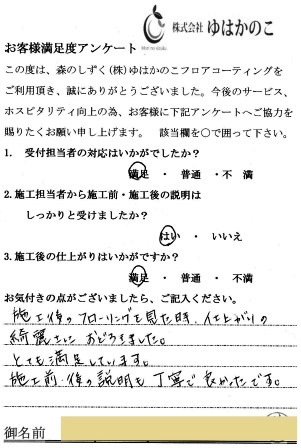 株式会社 ゆはかのこ
お客様満足度アンケート
この度は、森のしずく(株)ゆはかのこフロアコーティングを
ご利用頂き、誠にありがとうございました。今後のサービス、
ホスピタリティ向上の為、お客様に下記アンケートへご協力を
賜りたくお願い申し上げます。 該当欄を○で囲って下さい。
1. 受付担当者の対応はいかがでしたか?
満足 ・ 普通 ・ 不 満
2.施工担当者から施工前・施工後の説明は
しっかりと受けましたか?
はい ・ いいえ
3.施工後の仕上がりはいかがですか?
満足 ・ 普通 ・ 不 満
お気付きの点がございましたら、ご記入ください。
施工後のフローリングを見た時、仕上がりの
綺麗さに おどろきました。
とても満足しています。
施工前・後の説明も丁寧で良かったです。
御名前